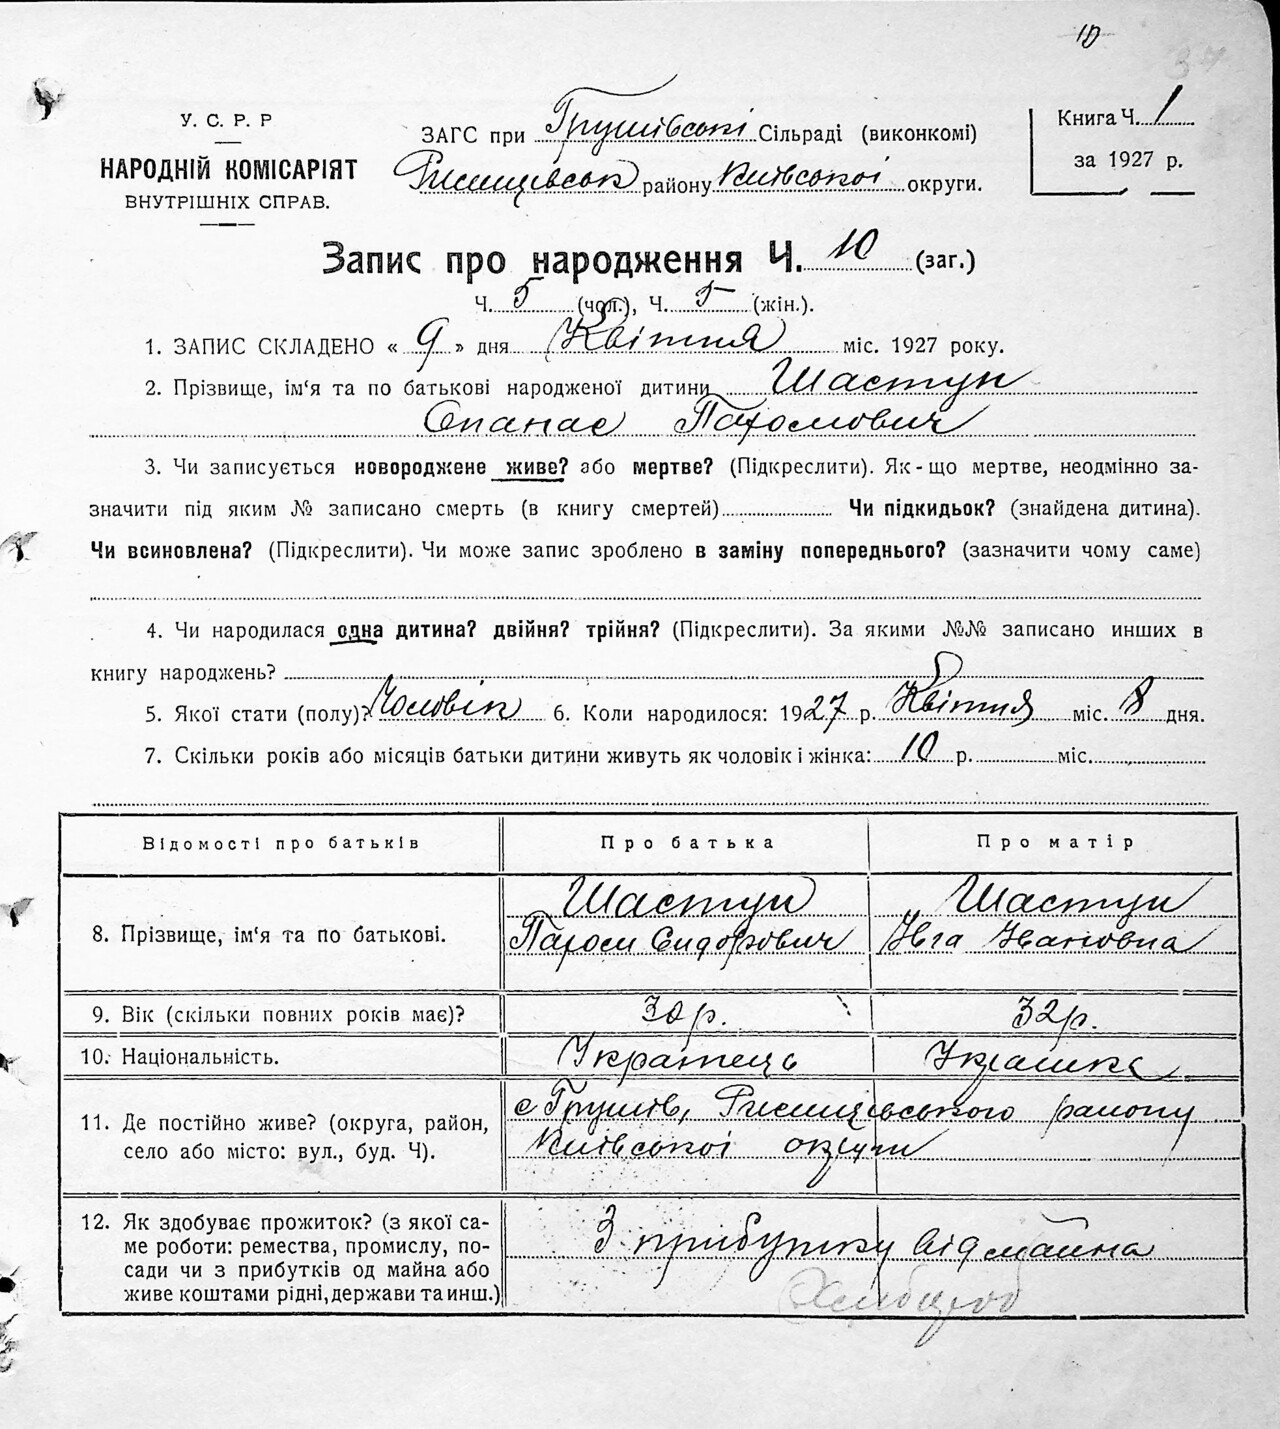 10
37
У. С. Р. Р
НАРОДНІЙ КОМІСАРІЯТ
ВНУТРІШНІХ СПРАВ.
ЗАГС при Грушівські Сільраді (виконкомі)
Ржищівськ району Київської округи.
Книга Ч. 1
за 1927 р.
Запис про народження Ч. 10 (заг.)
Ч. 5 (чол.), Ч. 5 (жін.).
1. ЗАПИС СКЛАДЕНО « 9 » дня Квітня міс. 1927 року.
2. Прізвище, ім‘я та по батькові народженої дитини Шастун
Опанас Пахомович
3. Чи записується новороджене живе? або мертве? (Підкреслити). Як-що мертве, неодмінно за-
значити під яким № записано смерть (в книгу смертей) Чи підкидьок? (знайдена дитина).
Чи всиновлена? (Підкреслити). Чи може запис зроблено в заміну попереднього? (зазначити чому саме)
4. Чи народилася одна дитина? двійня? трійня? (Підкреслити). За якими №№ записано инших в
книгу народжень?
5. Якої стати (полу)? Чоловік 6. Коли народилося: 1927 р. Квітня міс. 8 дня.
7. Скільки років або місяців батьки дитини живуть як чоловік і жінка: 10 р. міс.
Відомості про батьків Про батька Про матір
8. Прізвище, ім‘я та по батькові.
Шастун
Пахом Сидорович
Шастун
Ївга Івановна
9. Вік (скільки повних років має)? 30 р. 32 р.
10. Національність. Українець Українка
11. Де постійно живе? (округа, район,
село або місто: вул., буд. Ч).
с Грушів, Ржищівського району
Київської округи
12. Як здобуває прожиток? (з якої са-
ме роботи: ремества, промислу, по-
сади чи з прибутків од майна або
живе коштами рідні, держави та инш.)
З прибутку від майна
Хлібороб